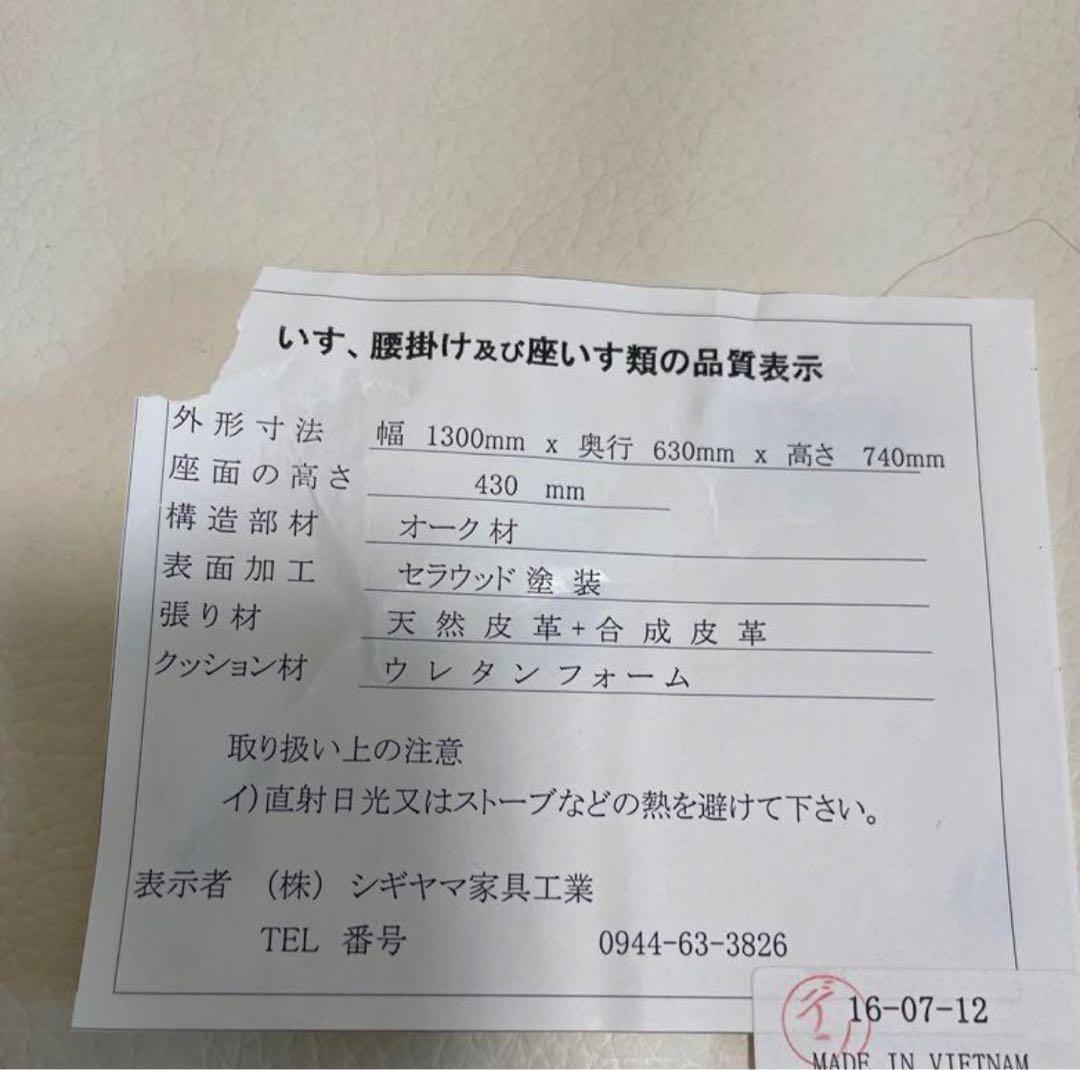 いす、腰掛け及び座いす類の品質表示
外形寸法 幅 1300mm x 奥行 630mm x 高さ 740mm
座面の高さ 430 mm
構造部材 オーク材
表面加工 セラウッド塗装
張り材 天然皮革+合成皮革
クッション材 ウレタンフォーム
取り扱い上の注意
イ)直射日光又はストーブなどの熱を避けて下さい。
表示者 (株) シギヤマ家具工業
TEL 番号 0944-63-3826
16-07-12
MADE IN VIETNAM